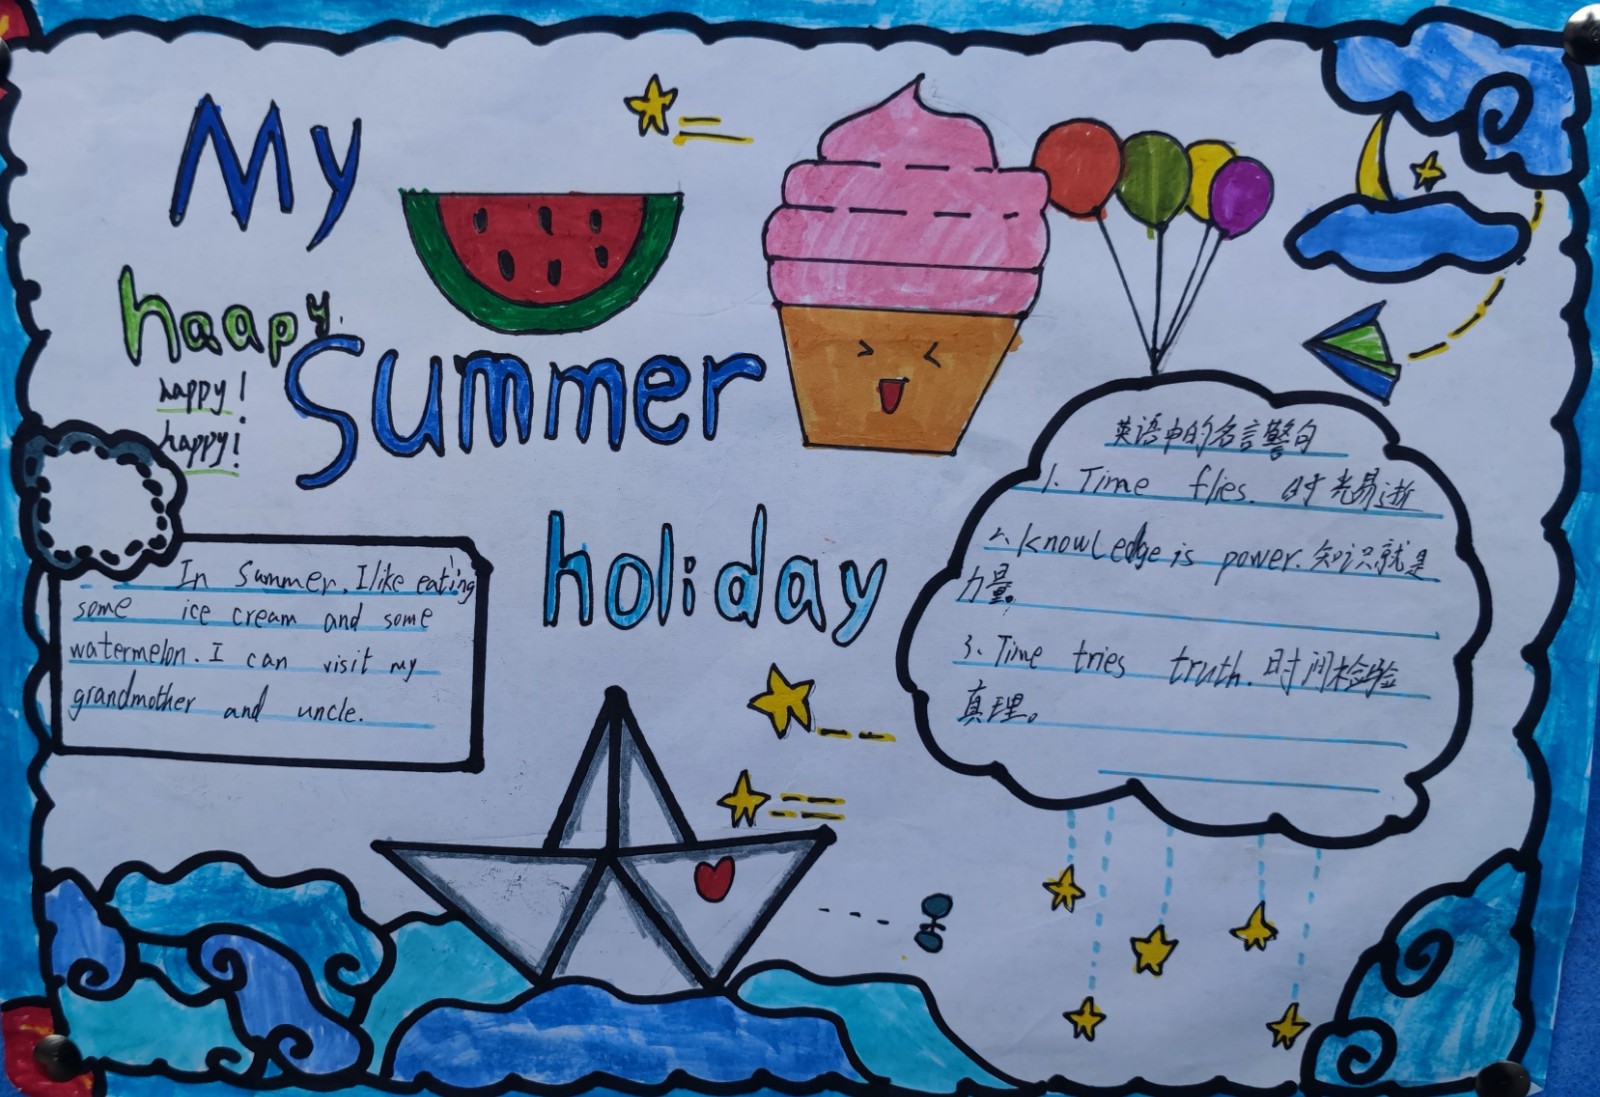 My
haapy
happy!
happy!
Summer
holiday
In Summer, I like eating
some ice cream and some
watermelon. I can visit my
grandmother and uncle.
英语中的名言警句
1、Time flies. 时光易逝
2、knowledge is power. 知识就是
力量。
3、Time tries truth. 时间检验
真理。